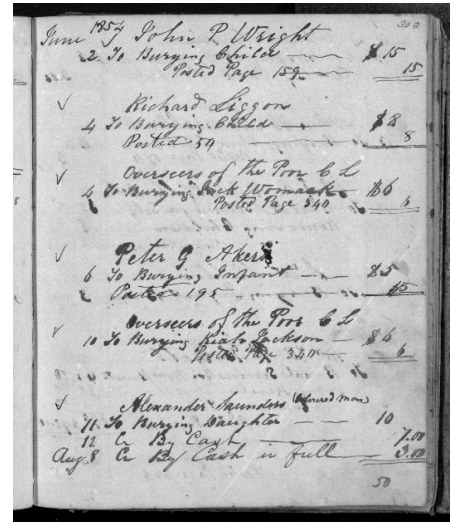 303
June 1857 John P Wright
2 To Burying Child $15
Posted Page 159 15
✓ Richard Liggon
4 To Burying Child $8
Posted 54 8
✓ Overseers of the Poor C L
4 To Burying Jack Womack $6
Posted Page 340 6
✓ Peter G Akers
6 To Burying Infant $5
Posted 195 $5
✓ Overseers of the Poor C L
10 To Burying Jackson $6
Posted Page 340 6
✓ Alexander Saunders (Coloured man)
11 To Burying Daughter 10
12 Cr By Cash 7.00
Aug 8 Cr By Cash in full 3.00
50